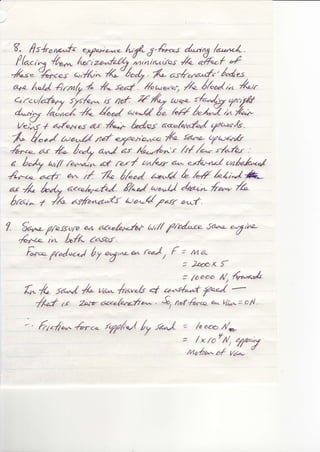 8. Astronauts experience high g-forces during launch.
Placing them horizontally minimises the affect of
these forces within the body. The astronauts' bodies
are held firmly to the seat. However, the blood in their
circulatory system is not. If they were standing upright
during launch the blood would be left behind in their
veins + arteries as their bodies accelerated upwards.
The blood would not experience the same upward
force as the body and as Newton's 1st law states:
a body will remain at rest unless an external unbalanced
force acts on it. The blood would be left behind
as the body accelerated. Blood would drain from the
brain + the astronauts would pass out.
9. Same pressure on accelerator will produce same engine
force in both cases.
Force produced by engine on road, F = ma
= 2000 x 5
= 10000 N, forwards
In the sand the van travels at constant speed —
that is zero acceleration. So, net force on van = 0N.
∴ Friction force supplied by sand = 10000 N
= 1x10⁴ N, opposing
motion of van